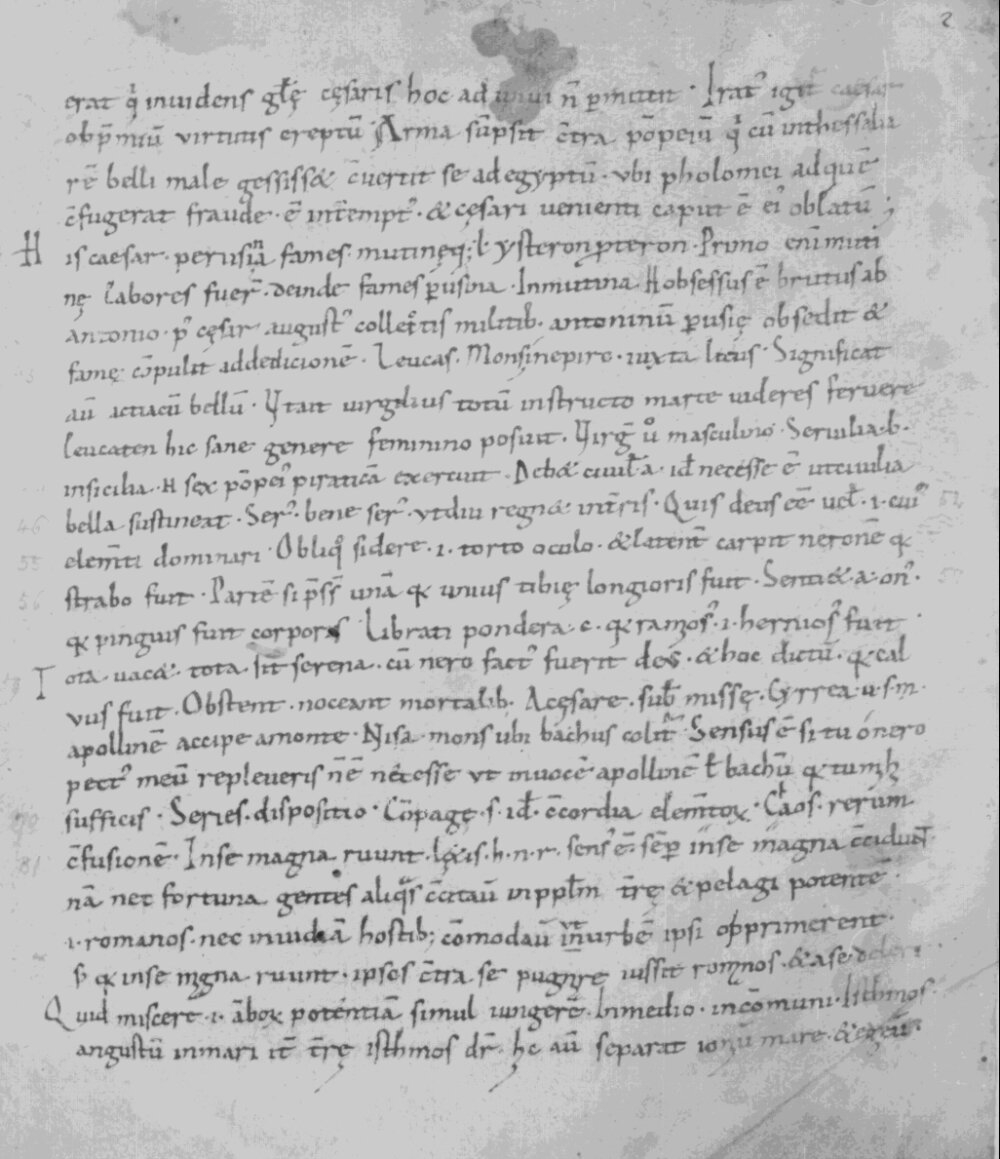 2
erat q̇ inuidens gl̄ę cęsaris hoc ad unui n̄ p̄mittit · Irat᾽ igit᾽ caesar
ob p̄miū virtutis ereptū Arma sūpsit c̄tra pōpeiū q̇ cū inthessalia
rē belli male gessiss& c̄uertit se ad egyptū · vbi pholomei ad quē
c̄fugerat fraude · ē int̄emptꝰ · & cęsari uenienti caput ē eiꝰ oblatū ;
H is caesar · perusina fames · mutinęq; l · ysteron pteron · Primo enī muti
nę labores fuer̄ · deinde fames pusina · In mutina H obsessus ē brutus ab
antonio · pꝰ cęsar augustꝰ collectis militib · antoninū pusię obsedit &
famę cōpulit addedicionē · Leucas · Mons in epiro · iuxta litus · Significat
aū actiacū bellū · Vt ait uirgilius totū instructo marte uideres feruere
leucaten hic sane genere feminino posuit · Virḡ u̇ masculino · Seruilia · b ·
insicilia · H sex pōpei piraticā exercuit · Deb& ciuil̄ a · id̄ necesse ē ut ciuilia
bella sustineat · Serꝰ · bene serꝰ · vt diu regn& int̄ris · Quis deus eē uel̄ · i · cuiꝰ
46 52
elem̄ti dominari · Obliqͦ sidere · i · torto oculo · & latent̄ carpit neronē qꝫ
55
strabo fuit · Partē si p̄ss̄ unā qꝫ unus tibię longioris fuit · Senti& · a · onꝰ ·
56
qꝫ pinguis fuit corporis Librati pondera · c · qꝫ ramosꝰ · i · herniosꝰ fuit
T ota · uac& · tota · sit serena · cū nero factꝰ fuerit deꝰ · & hoc dictū · qꝫ cal
vus fuit · Obstent · noceant mortalib · A cęsare · sub̄ missę · Cyrrea · u · s · m ·
apollinē accipe a monte · Nisa · mons ubi bachus colit᾽ Sensus ē si tu ó nero
pectꝰ meū repleueris n̄ ē necesse ut inuocē apollinē l̄ bachū qꝫ tu m̄
sufficis · Series · dispositio · Cōpagę · s · id̄ c̄cordia elem̄toꝝ · Caos · rerum
c̄fusionē · In se magna ruunt · l&is · h · n · r · sensꝰ ē · sēp in se magna c̄cidunt
81
nā nec fortuna gentes aliqͦs c̄citaū in ppl̄m t̄rę & pelagi potentē ·
i · romanos · nec inuidiā hostib; cōmodaū ut in urbē ipsi opprimerent
s꞉ qꝫ in se magna ruunt · ipsos c̄tra se pugnare iussit romanos · & a se deleri
Quid miscere · i · āboꝝ potentiā simul iungerē · In medio · in cōmuni · Isthmos ·
angustū in mari it̄ t̄rę isthmos dr̄ · hc aū separat ionū mare · & egeū ·